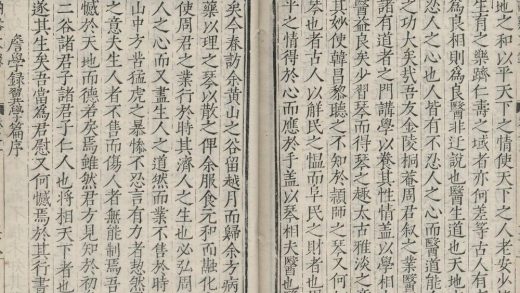 地之和以平天下之情使天下之人老安少
生育之樂躋仁壽之域者亦何差等古人有
為良相則為良醫非迂說也醫生道也天地
人之心也人皆有不忍人之心而醫道能
之功大矣哉吾友金陵桐菴周君叙之業醫
諸有道者之門講學以養其性情盖以學相
醫益良矣少習琴而得琴之趣太古雅淡之音
其妙使韓昌黎聽之不知於頴師之琴又何
琴也者古人以觧民之慍而阜民之財者也
平之情得於心而應於手盖以琴相夫醫也
矣今春訪余黄山之谷留越月而歸余方病
藥以理之琴以散之俾余服食元和而融化
使周君之業行於時其濟人之生也必弘周
人之心而又盡生人之道然而業不售於時
山中方苦猛虎之暴慘不忍言有力者恝然
之意夫生人者不售而傷人者無能制焉吾
憾於天地而德君矣焉雖然君方見知於初
二谷諸君子諸君子仁人也將相天下者也
遂其生矣吾當為君慰又何憾焉於其行書
詹學録翼學篇序